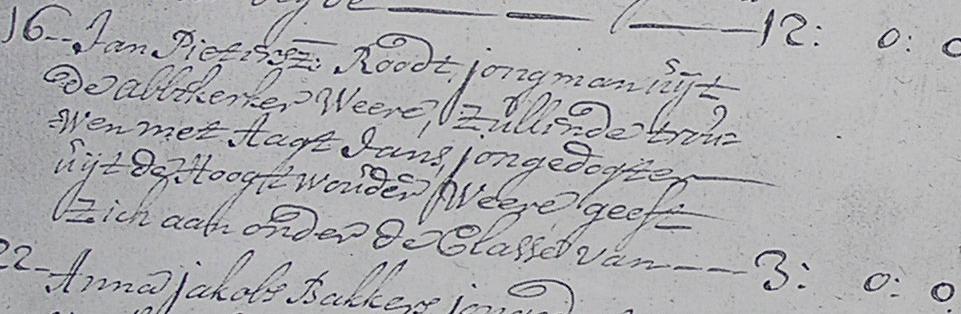 12: 0: 0
16 Jan Pietersz: Roodt, jongman uijt
de abbtkerker Weere, zullende trou=
wen met Aagt Jans, jongedogter
uijt de Hoogtwouder Weere geeft
zich aan onder de Classe van 3: 0: 0
22 Anna jakobs Bakkers